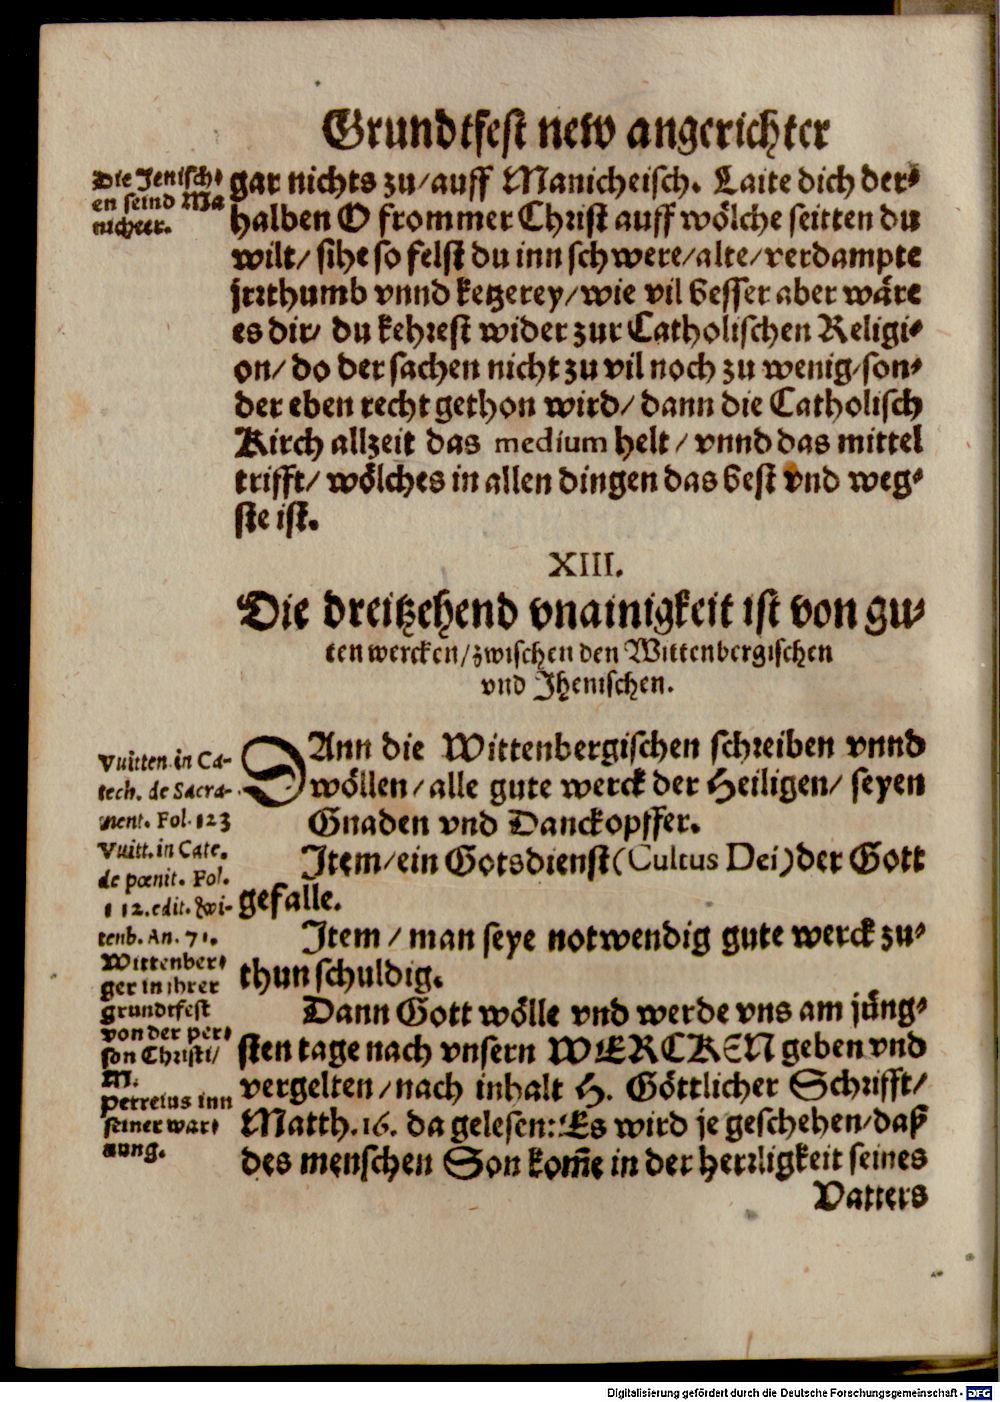 Grundtfest new angerichter
Die Jenisch⸗
en seind Ma
nicheer.
gar nichts zu/ auff Manicheisch. Laite dich der⸗
halben O frommer Christ auff wölche seitten du
wilt/ sihe so felst du inn schwere/ alte/ verdampte
jrrthumb vnnd ketzerey/ wie vil besser aber wäre
es dir/ du kehrest wider zur Catholischen Religi⸗
on/ do der sachen nicht zu vil noch zu wenig/ son⸗
der eben recht gethon wird/ dann die Catholisch
Kirch allzeit das medium helt / vnnd das mittel
trifft/ wölches in allen dingen das best vnd weg⸗
ste ist.
XIII.
Die dreitzehend vnainigkeit ist von gu⸗
ten wercken/ zwischen den Wittenbergischen
vnd Jhenischen.
DAnn die Wittenbergischen schreiben vnnd
wöllen/ alle gute werck der Heiligen/ seyen
Gnaden vnd Danckopffer.
Item/ ein Gotsdienst (Cultus Dei) der Gott
gefalle.
Item / man seye notwendig gute werck zu⸗
thun schuldig.
Dann Gott wölle vnd werde vns am jüng⸗
sten tage nach vnsern WERCKEN geben vnd
vergelten/ nach inhalt H. Göttlicher Schrifft/
Matth. 16. da gelesen: Es wird je geschehen/ daß
des menschen Son kom̃e in der herrligkeit seines
Vatters
Vuitten. in Ca-
tech. de Sacra-
ment. Fol. 123
Vuitt. in Cate.
de pœnit. Fol.
112. edit. Wi-
tenb. An. 71.
Wittenber⸗
ger in ihrer
grundtfest
von der per⸗
son Christi/
M.
Petreius inn
seiner war⸗
nung.
Digitalisierung gefördert durch die Deutsche Forschungsgemeinschaft - DFG